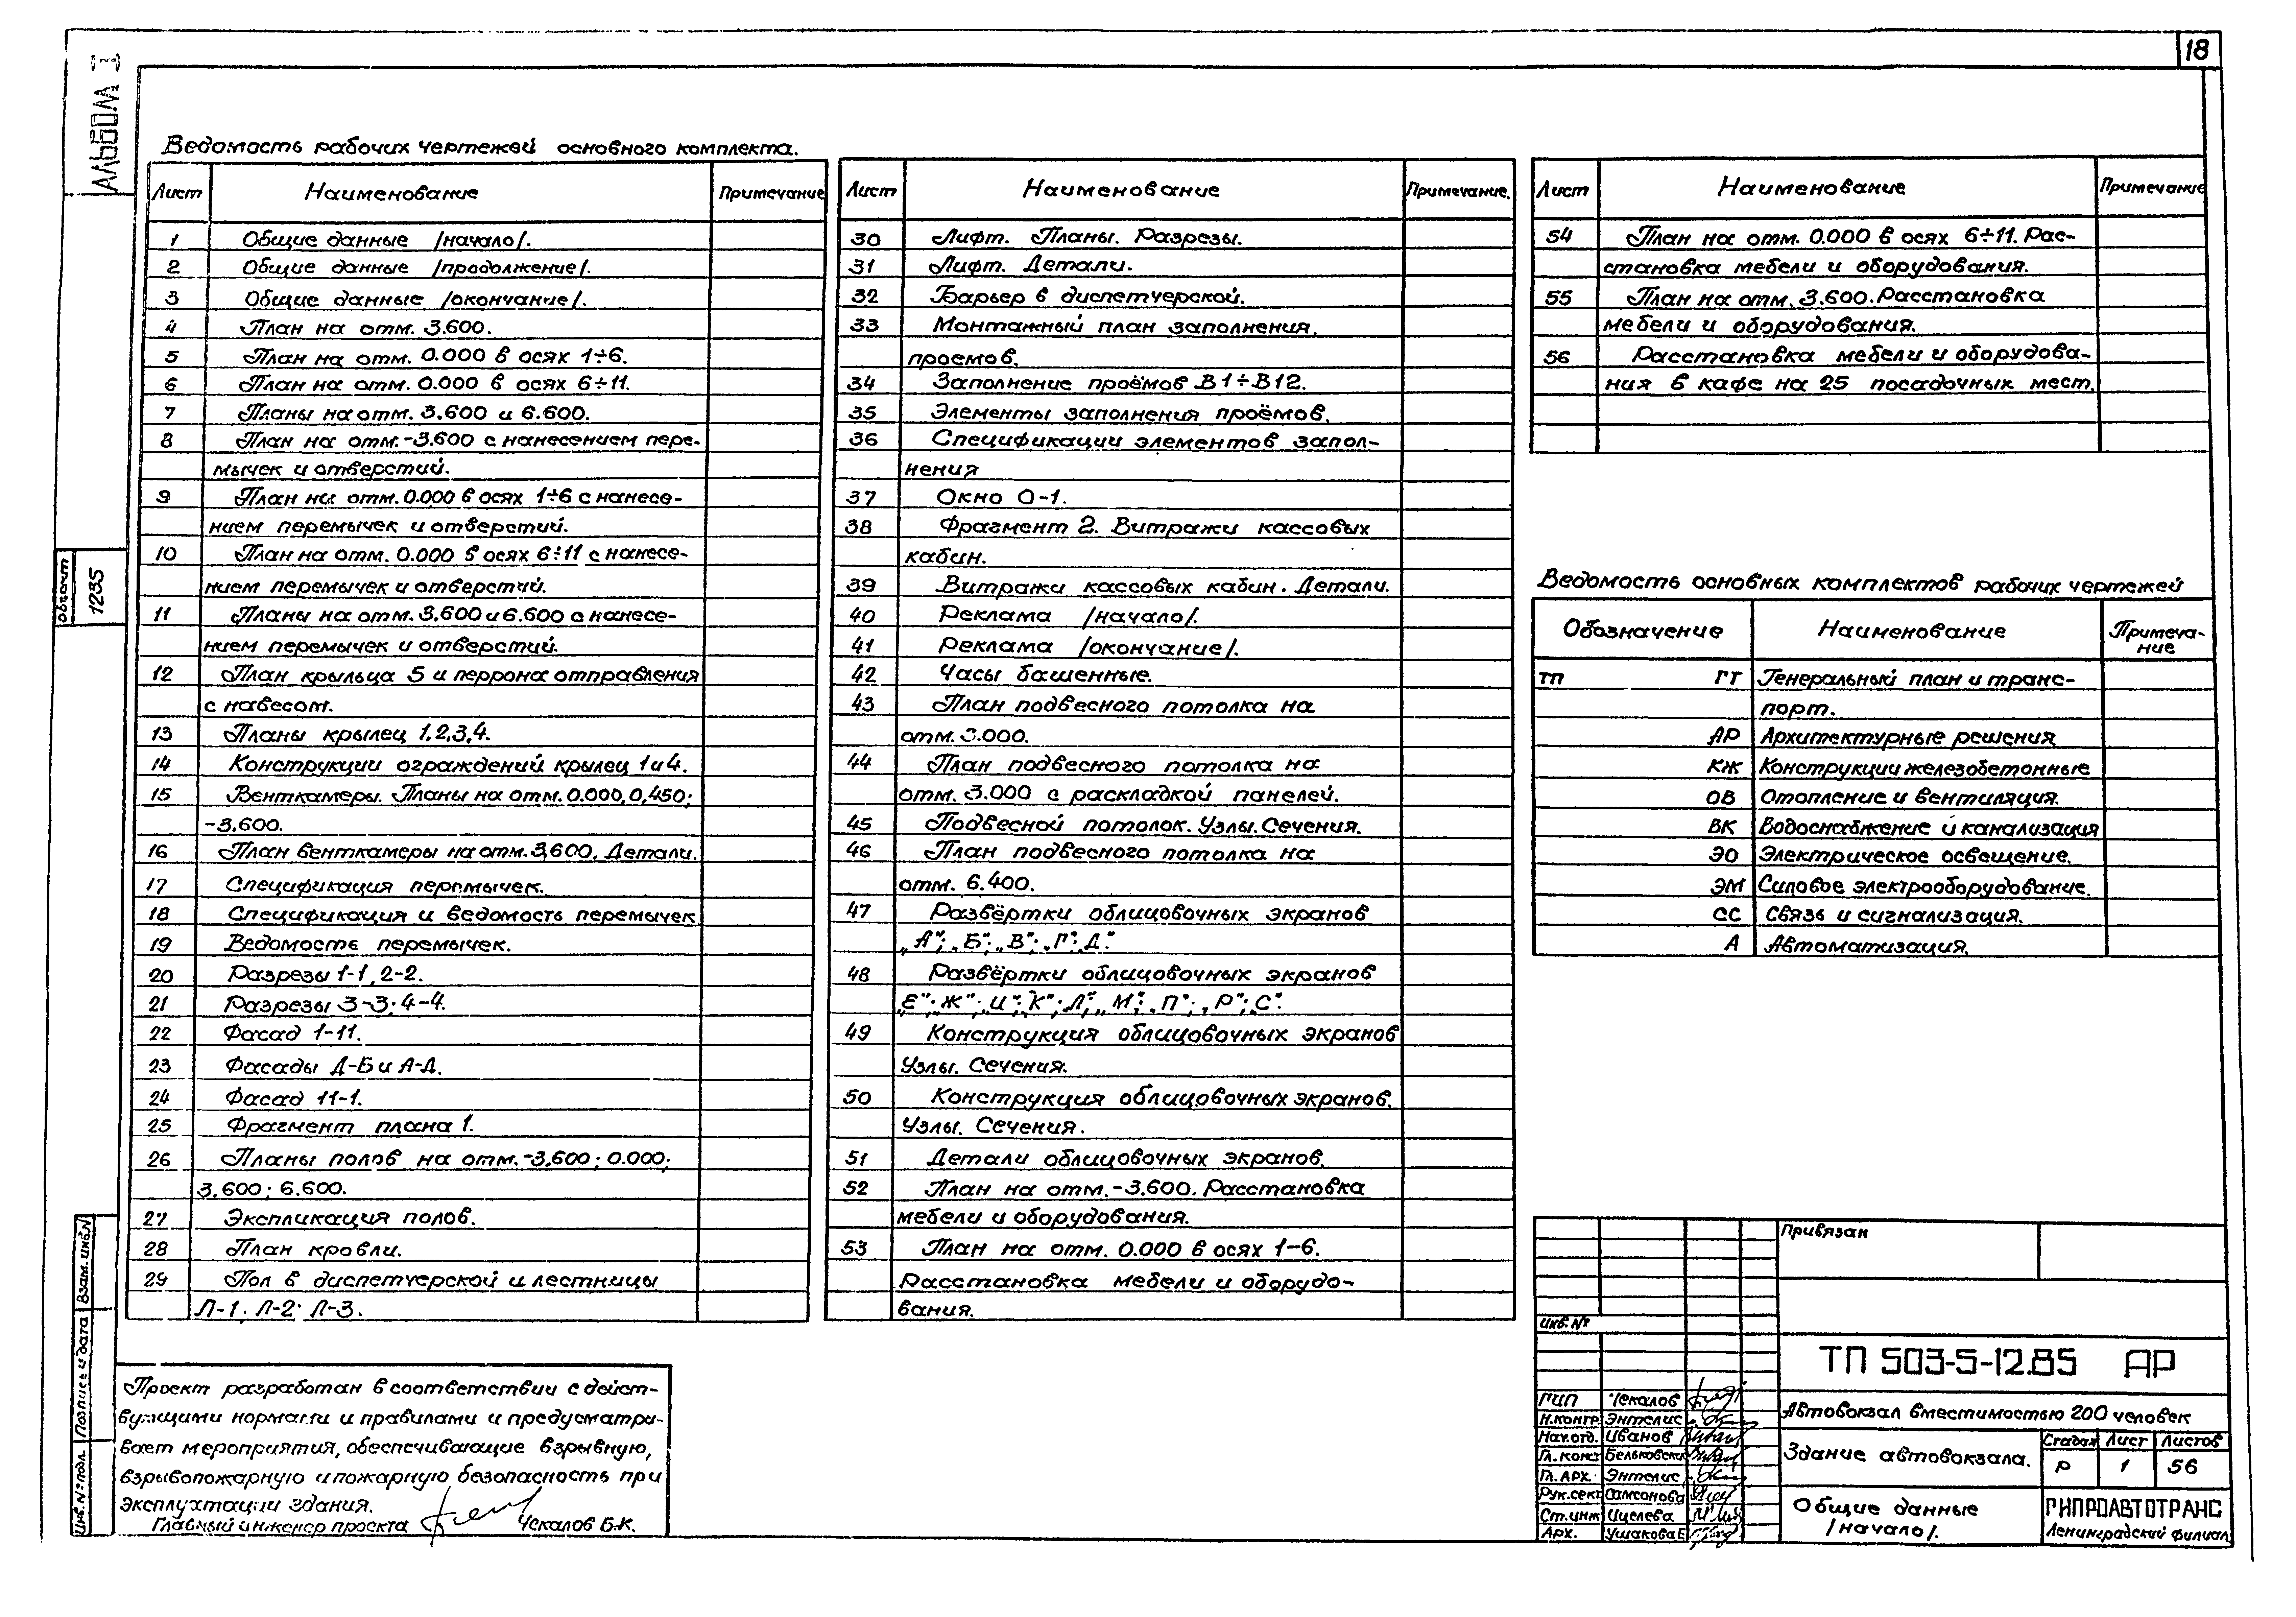 18
Альбом I
Ведомость рабочих чертежей основного комплекта.
Лист Наименование Примечание
1 Общие данные /начало/.
2 Общие данные /продолжение/.
3 Общие данные /окончание/.
4 План на отм. 3.600.
5 План на отм. 0.000 в осях 1÷6.
6 План на отм. 0.000 в осях 6÷11.
7 Планы на отм. 3.600 и 6.600.
8 План на отм. -3.600 с нанесением пере-
мычек и отверстий.
9 План на отм. 0.000 в осях 1÷6 с нанесе-
нием перемычек и отверстий.
10 План на отм. 0.000 в осях 6÷11 с нанесе-
нием перемычек и отверстий.
11 Планы на отм. 3.600 и 6.600 с нанесе-
нием перемычек и отверстий.
12 План крыльца 5 и перрона отправления
с навесом.
13 Планы крылец 1,2,3,4.
14 Конструкции ограждений крылец 1и4.
15 Венткамеры. Планы на отм. 0.000, 0,450;
-3.600.
16 План венткамеры на отм. 3,600. Детали.
17 Спецификация перемычек.
18 Спецификация и ведомость перемычек
19 Ведомость перемычек.
20 Разрезы 1-1, 2-2.
21 Разрезы 3-3; 4-4.
22 Фасад 1-11.
23 Фасады Д-Б и А-Д.
24 Фасад 11-1.
25 Фрагмент плана 1.
26 Планы полов на отм. -3,600; 0.000;
3.600; 6.600.
27 Экспликация полов.
28 План кровли.
29 Пол в диспетчерской и лестницы
Л-1; Л-2; Л-3.
Лист Наименование Примечание.
30 Лифт. Планы. Разрезы.
31 Лифт. Детали.
32 Барьер в диспетчерской.
33 Монтажный план заполнения.
проемов.
34 Заполнение проёмов В1÷В12.
35 Элементы заполнения проёмов.
36 Спецификации элементов запол-
нения
37 Окно О-1.
38 Фрагмент 2. Витражи кассовых
кабин.
39 Витражи кассовых кабин. Детали.
40 Реклама /начало/.
41 Реклама /окончание/.
42 Часы башенные.
43 План подвесного потолка на
отм. 3.000.
44 План подвесного потолка на
отм. 3.000 с раскладкой панелей.
45 Подвесной потолок. Узлы. Сечения.
46 План подвесного потолка на
отм. 6.400.
47 Развёртки облицовочных экранов
„А“; „Б“; „В“; „Г“; „Д“.
48 Развёртки облицовочных экранов
„Е“; „Ж“; „И“; „К“; „Л“; „М“; „П“; „Р“; „С“.
49 Конструкция облицовочных экранов
Узлы. Сечения.
50 Конструкция облицовочных экранов.
Узлы. Сечения.
51 Детали облицовочных экранов.
52 План на отм. -3.600. Расстановка
мебели и оборудования.
53 План на отм. 0.000 в осях 1-6.
Расстановка мебели и оборудо-
вания.
Лист Наименование Примечание
54 План на отм. 0.000 в осях 6÷11. Рас-
становка мебели и оборудования.
55 План на отм. 3.600. Расстановка
мебели и оборудования.
56 Расстановка мебели и оборудова-
ния в кафе на 25 посадочных мест.
Ведомость основных комплектов рабочих чертежей
Обозначение Наименование Примеча-
ние
ТП ГТ Генеральный план и транс-
порт.
АР Архитектурные решения
КЖ Конструкции железобетонные
ОВ Отопление и вентиляция.
ВК Водоснабжение и канализация
ЭО Электрическое освещение.
ЭМ Силовое электрооборудование.
СС Связь и сигнализация.
А Автоматизация.
объект 1235
Взам. инв.N
Подпись и дата
Инв.N°подл.
Проект разработан в соответствии с дейст-
вующими нормами и правилами и предусматри-
вает мероприятия, обеспечивающие взрывную,
взрывопожарную и пожарную безопасность при
эксплуатации здания.
Главный инженер проекта Чекалов Б.К.
Привязан
инв. N°
ТП 503-5-12.85 АР
ГИП Чекалов
Н.контр. Энтелис
Нач.отд. Иванов
Гл.конс Бельковски
Гл.арх. Энтелис
Рук.сект Самсонова
Ст.инж Ицелева
Арх. Ушакова Е
Автовокзал вместимостью 200 человек
Здание автовокзала.
Стадия Лист Листов
Р 1 56
Общие данные
/начало/.
ГИПРОАВТОТРАНС
Ленинградский филиал